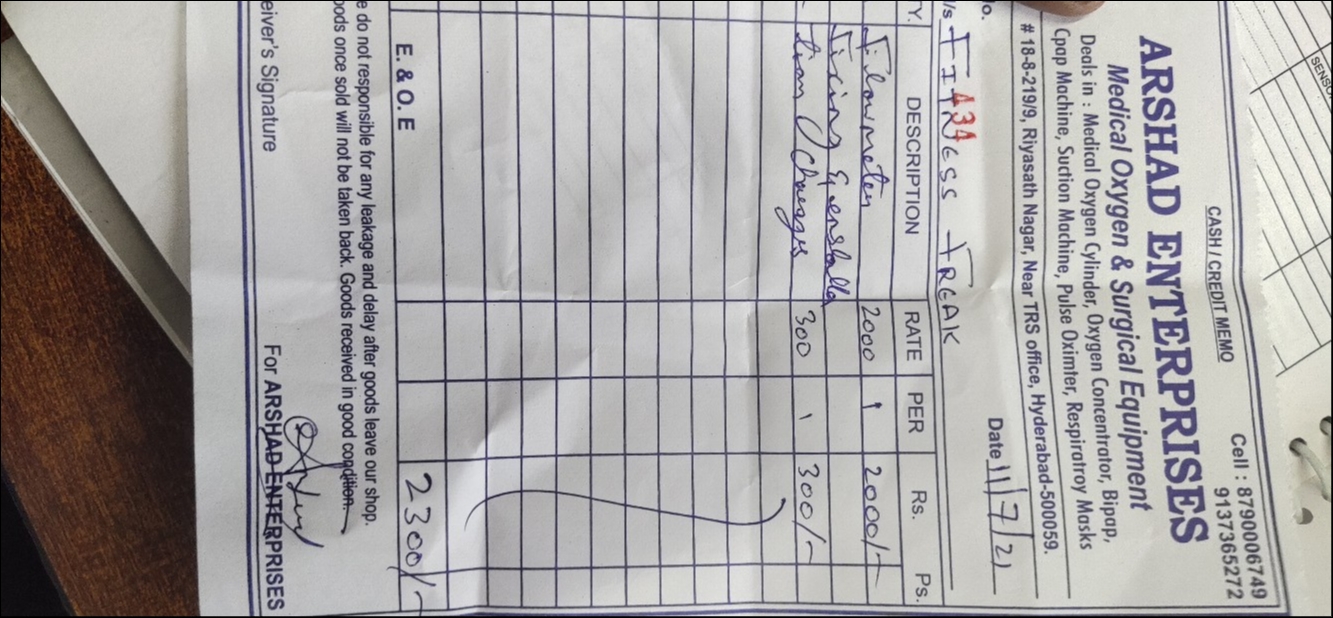 CASH / CREDIT MEMO
Cell : 8790006749
9137365272
ARSHAD ENTERPRISES
Medical Oxygen & Surgical Equipment
Deals in : Medical Oxygen Cylinder, Oxygen Concentrator, Bipap,
Cpap Machine, Suction Machine, Pulse Oximter, Respiratroy Masks
# 18-8-219/9, Riyasath Nagar, Near TRS office, Hyderabad-500059.
No. 434 Date 11/7/21
/s FITNESS FREAK
TY. DESCRIPTION RATE PER Rs. Ps.
Flowmeter 2000 1 2000/-
Fixing & enstalla
tion Charges 300 1 300/-
E. & O. E 2300/-
e do not responsible for any leakage and delay after goods leave our shop.
oods once sold will not be taken back. Goods received in good condition.
eiver's Signature For ARSHAD ENTERPRISES
SENSO